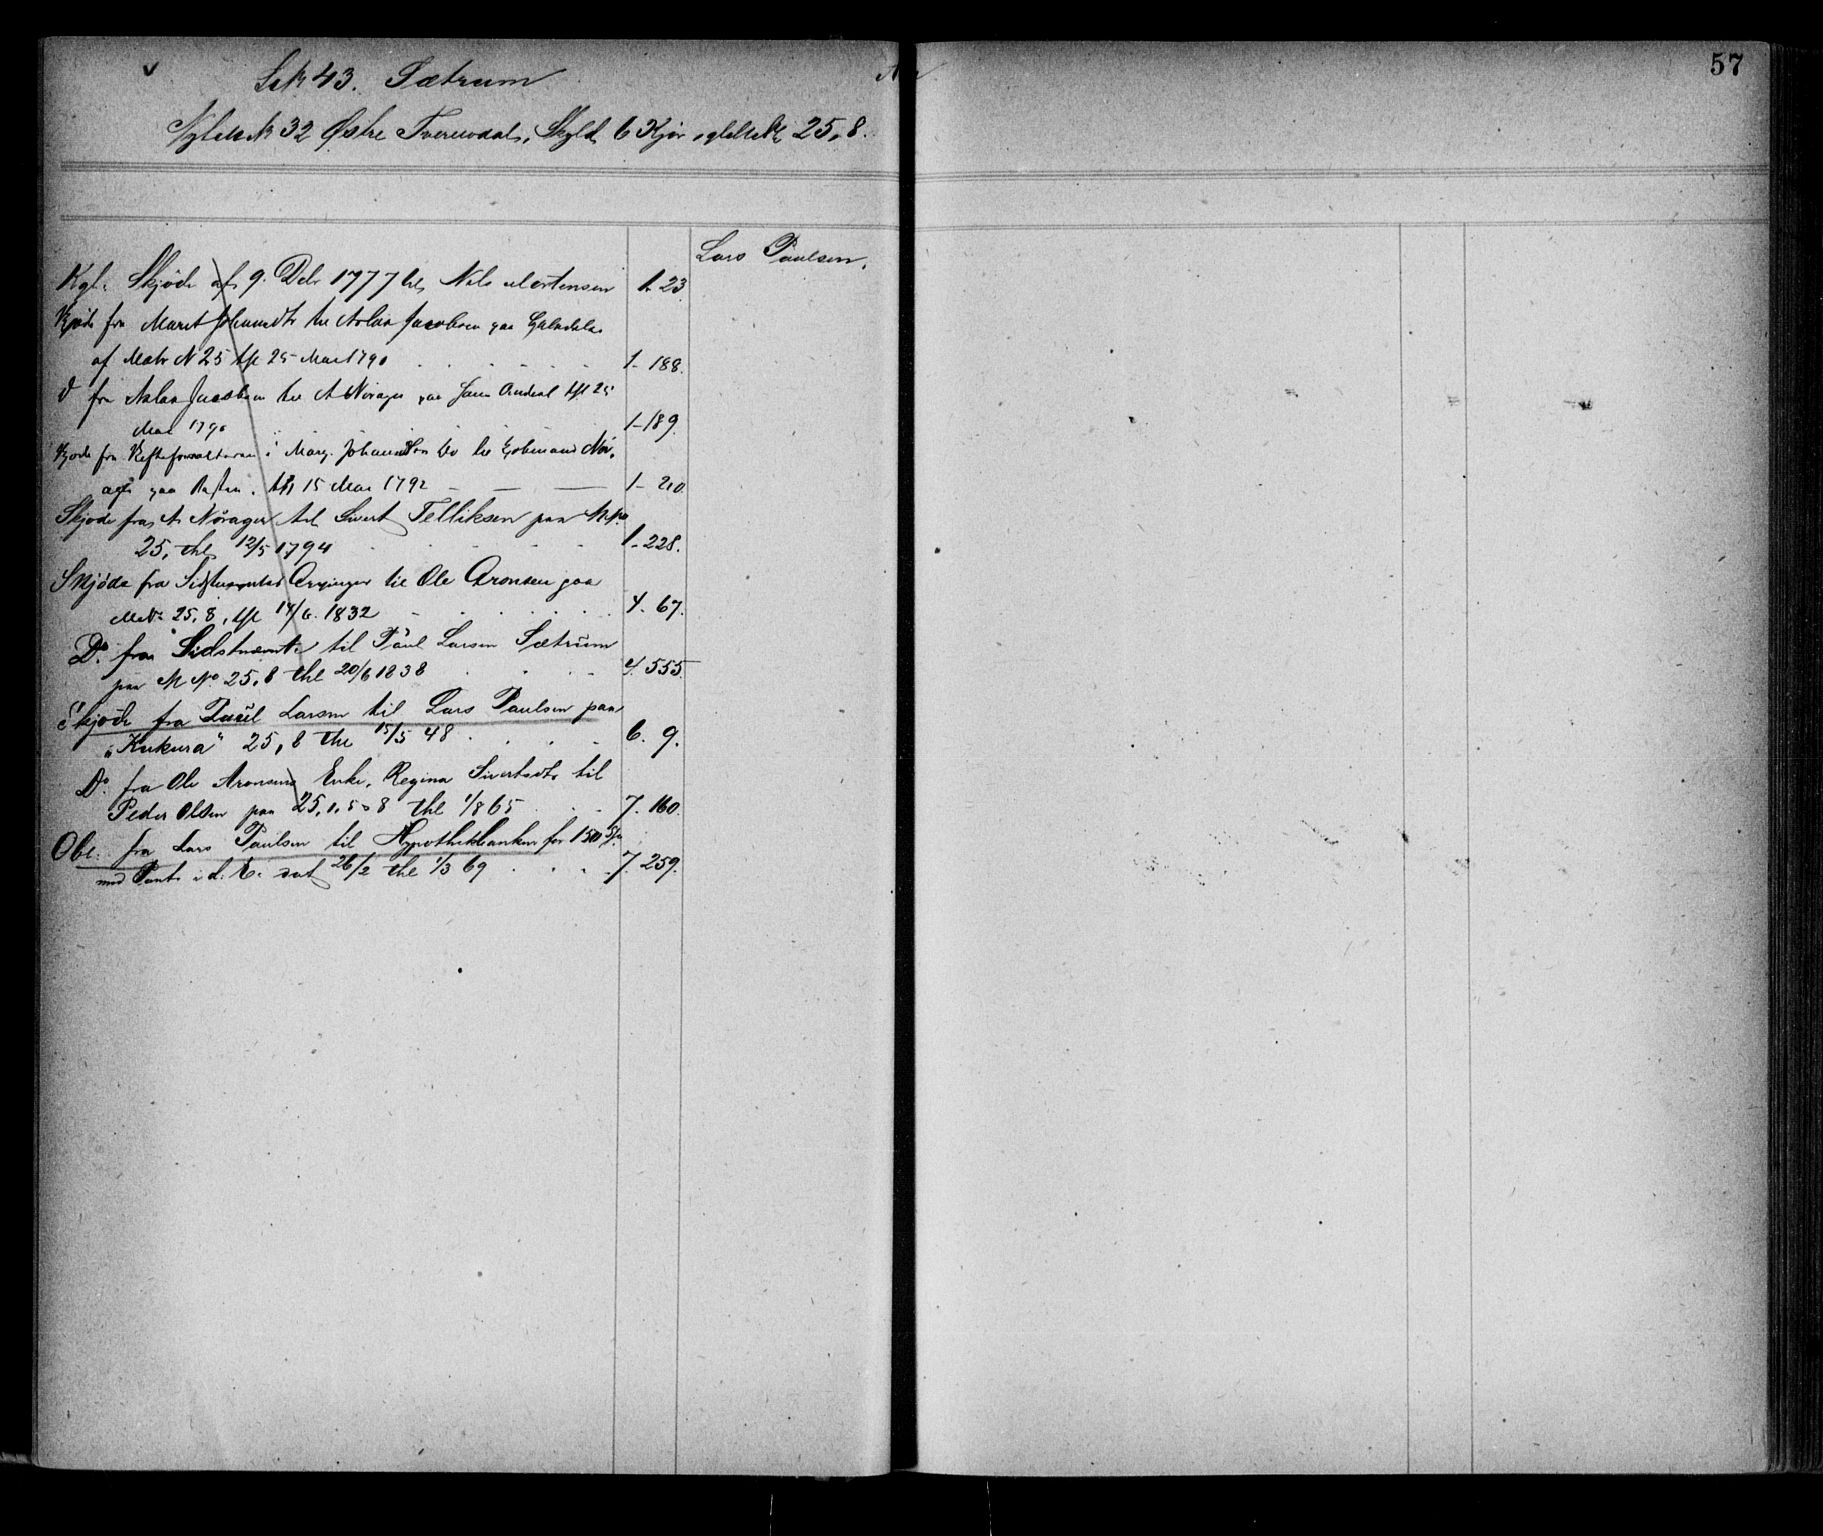 57
Lnr 43. Sætrum
Nyt M. N 32 Østre Tverrvdal, Skyld 6 Kjør, gl. M. N 25,8.
Lars Paulsen.
Kgl. Skjöde af 9. Debr 1777 til Nils Mortensen 1. 23
Skjøde fra Maret Johansdtr til Aslax Jacobsen paa
af Matr N 25 thl 25 Mai 1790 1 - 188.
d fra Aslax Jacobsen til A Norager paa thl 25
Mai 1790 1 - 189.
Skjøde fra Skifteforvalteren i Marg. Johannsdtr Bo til Nør-
ager paa thl 15 Mai 1792 1 - 210
Skjøde fra A Nørager til Sivert Telliksen paa M. No
25, thl 12/5 1794 1 - 228.
Skjøde fra Sidstnævntes Arvinger til Ole Aronsen paa
M No 25, 8, thl 14/6. 1832 4. 67.
Do. fra Sidstnævnte til Paul Larsen Sætrum
paa M No 25,8 thl 20/6 1838 4. 555
Skjøde fra Paul Larsen til Lars Paulsen paa
"Kukura" 25,8 thl 15/5 48 6. 9.
Do fra Ole Aronsens Enke, Regina Sivertsdtr til
Peder Olsen paa 25, 1, 5 8 thl 1/8 65 7. 160
Obl. fra Lars Paulsen til Hypothekbanken for 150 Spd.
med Pant i d. E. dat 26/2 thl 1/3 69 7. 259.